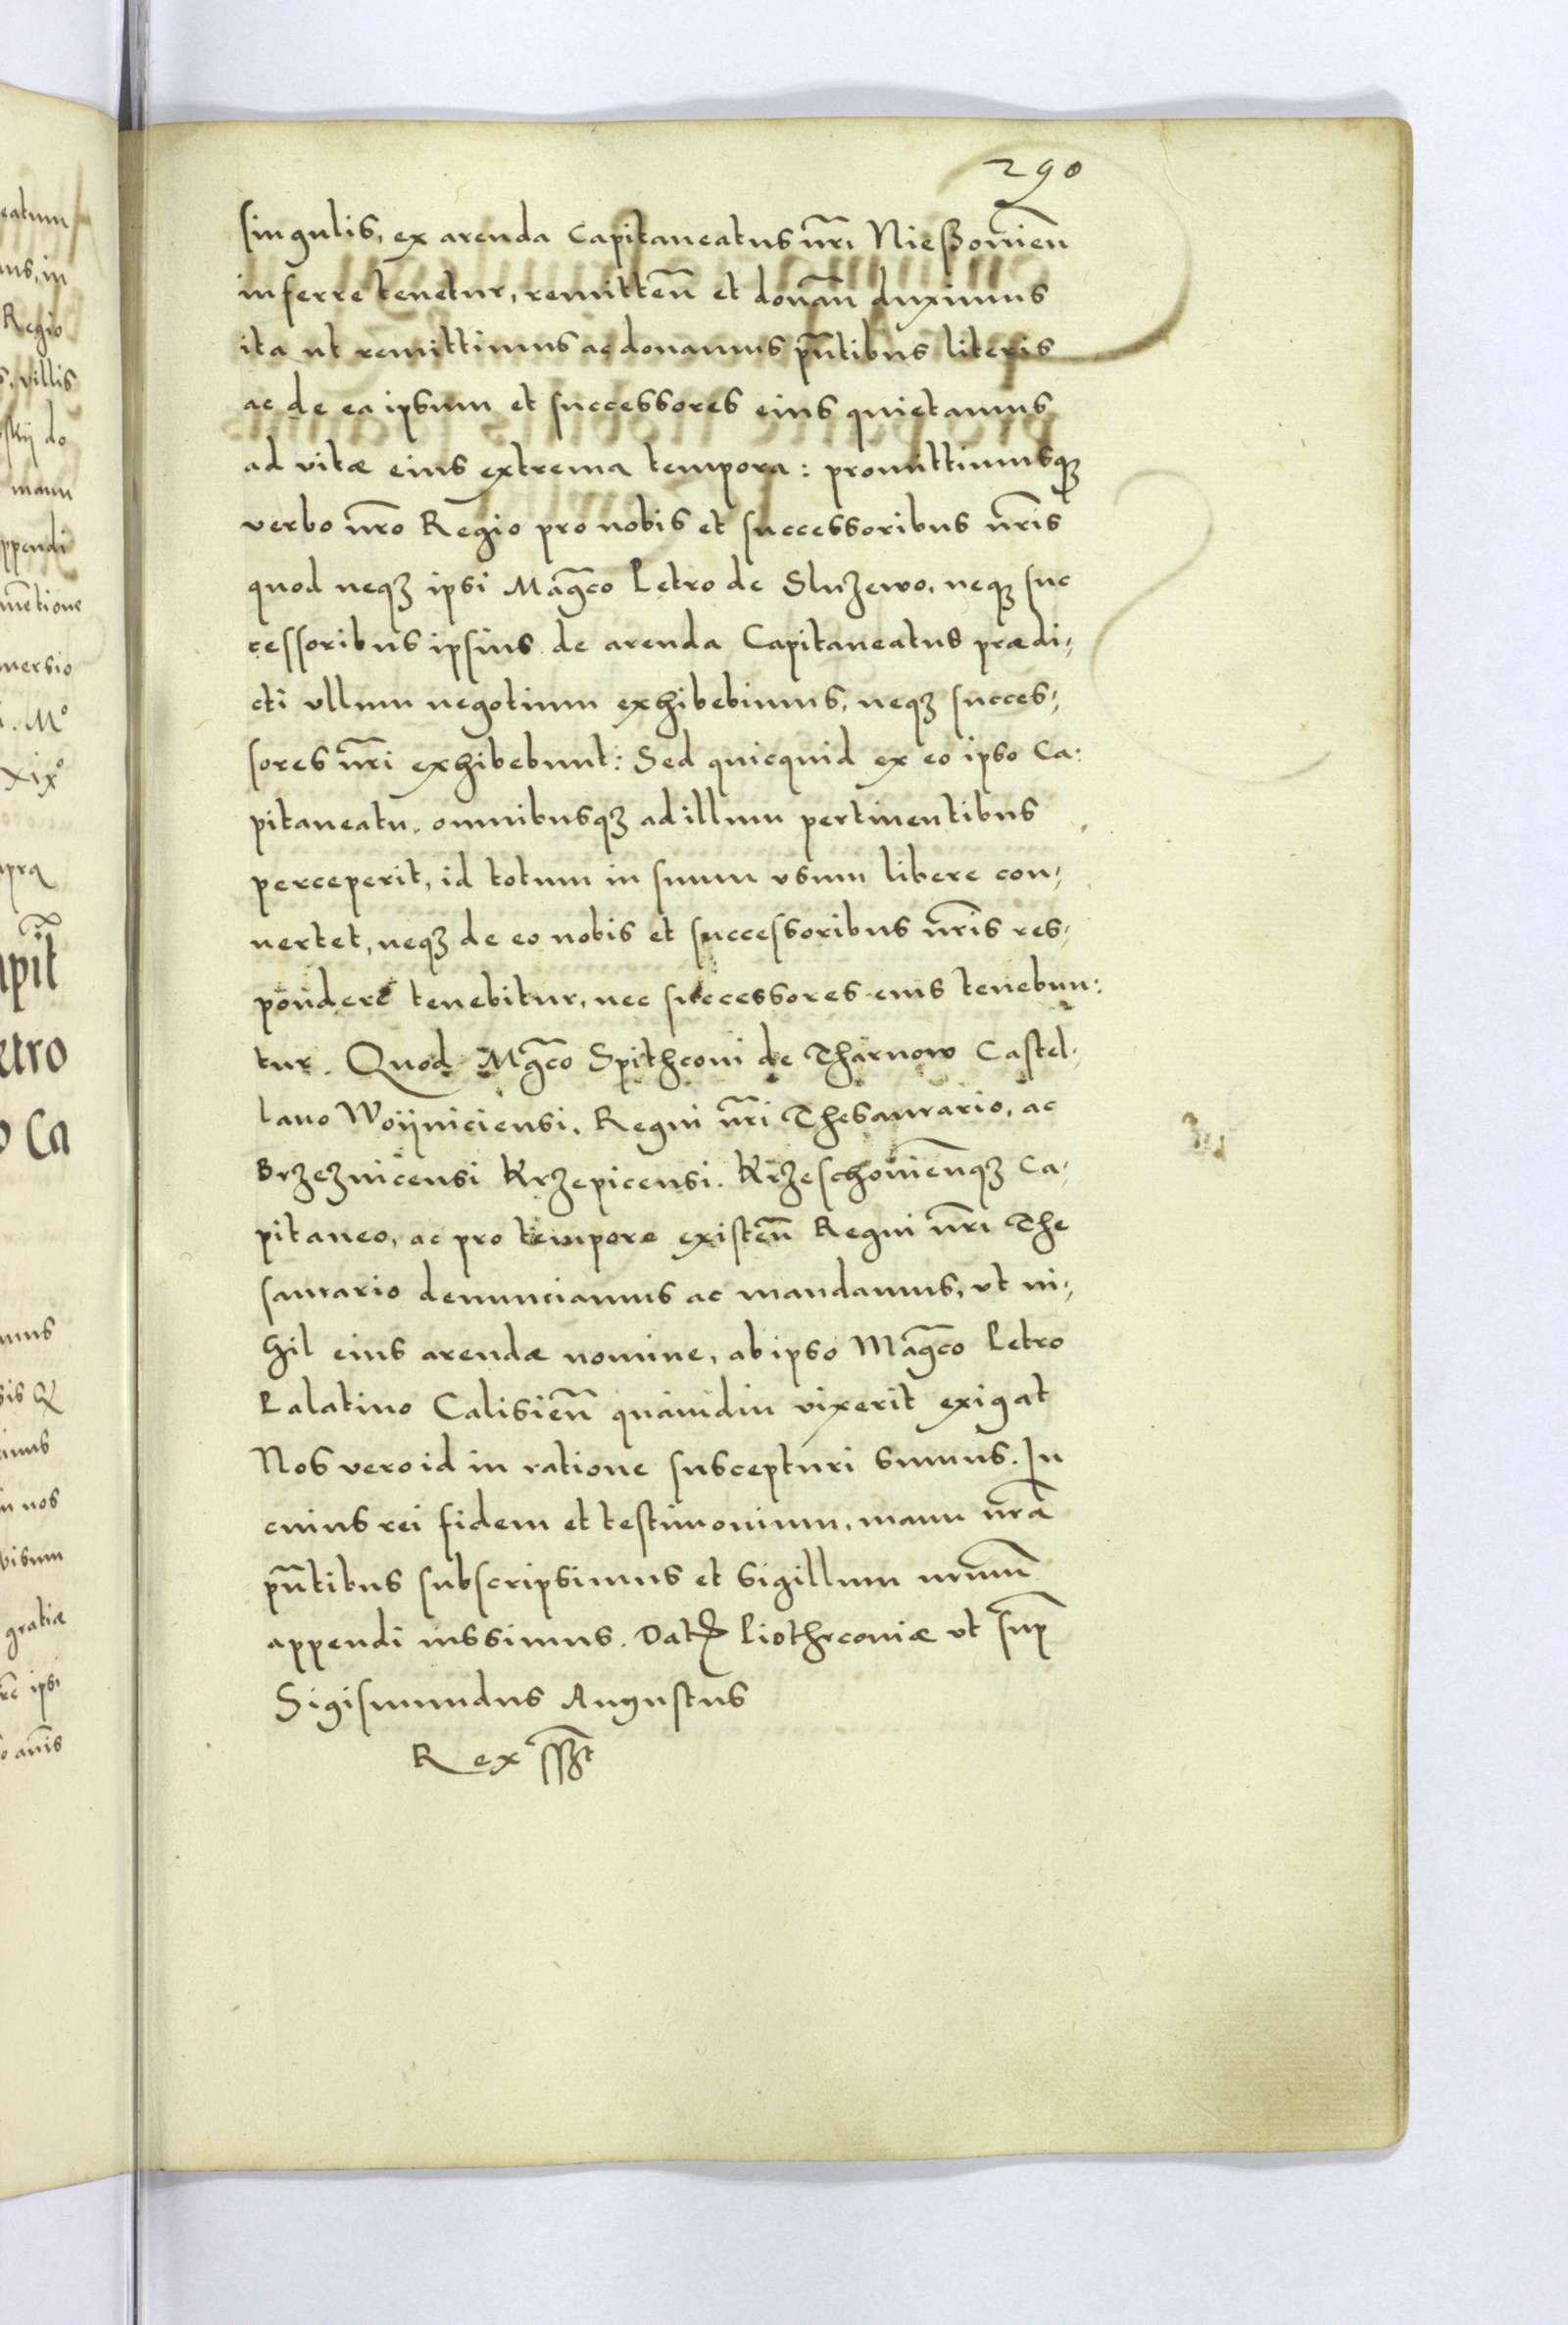 290
singulis, ex arenda Capitaneatus nr̃i Nießouien̄
inferre tenetur, remitten̄ et donan̄ duximus
ita ut remittimus ac donamus pñtibus literis
ac de ea ipsum et successores eius quietamus
ad vitæ eius extrema tempora: promittimusqꝫ
verbo nr̃o Regio pro nobis et successoribus nr̃is
quod neqꝫ ipsi Mag̃co Petro de Sluzewo, neqꝫ suc
cessoribus ipsius de arenda Capitaneatus prædi,
cti vllum negotium exhibebimus, neqꝫ succes,
sores nr̃i exhibebunt: Sed quicquid ex eo ipso Ca:
pitaneatu, omnibusqꝫ ad illum pertinentibus
perceperit, id totum in suum vsum libere con,
uertet, neqꝫ de eo nobis et successoribus nr̃is res,
pondere tenebitur, nec successores eius tenebun:
tur. Quod Mg̃co Spithconi de Tharnow Castel,
lano Woijniciensi, Regni nr̃i Thesaurario, ac
Brzeznicensi Krzepicensi. Krzeschouien̄qꝫ Ca,
pitaneo, ac pro tempore existen̄ Regni nr̃i The
saurario denunciamus ac mandamus, vt ni,
hil eius arendæ nomine, ab ipso Mag̃co Petro
Palatino Calisien̄ quamdiu vixerit exigat
Nos vero id in ratione suscepturi sumus. In
cuius rei fidem et testimonium, manu nr̃a
pñtibus subscripsimus et sigillum nr̃um
appendi iussimus. Datꝭ Piothrconiæ vt sup̃
Sigismundus Augustus
Rex sszt
eatum
us, in
Regio
s, villis
skij do
manu
ppendi
mẽtione
nersio
i. Mº
xixº
upra
apit̃
etro
o Ca
mus
sis Q
imus
in nos
visum
gratiæ
re ipsi
o anñis